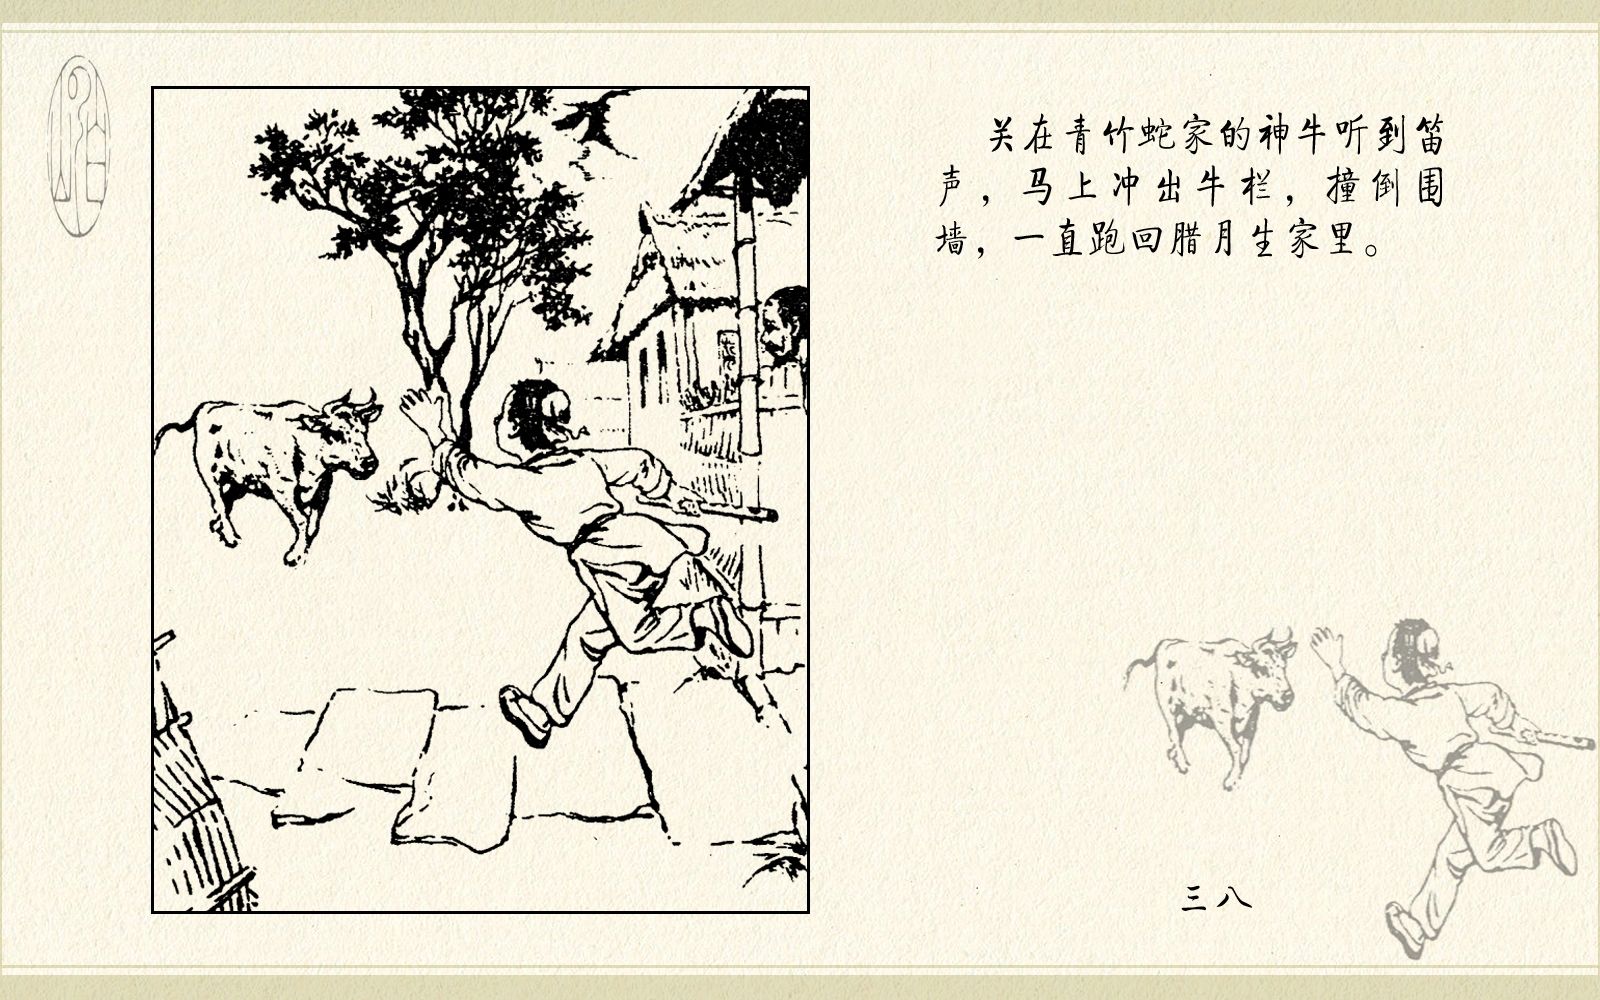 关在青竹蛇家的神牛听到笛
声，马上冲出牛栏，撞倒围
墙，一直跑回腊月生家里。
三八